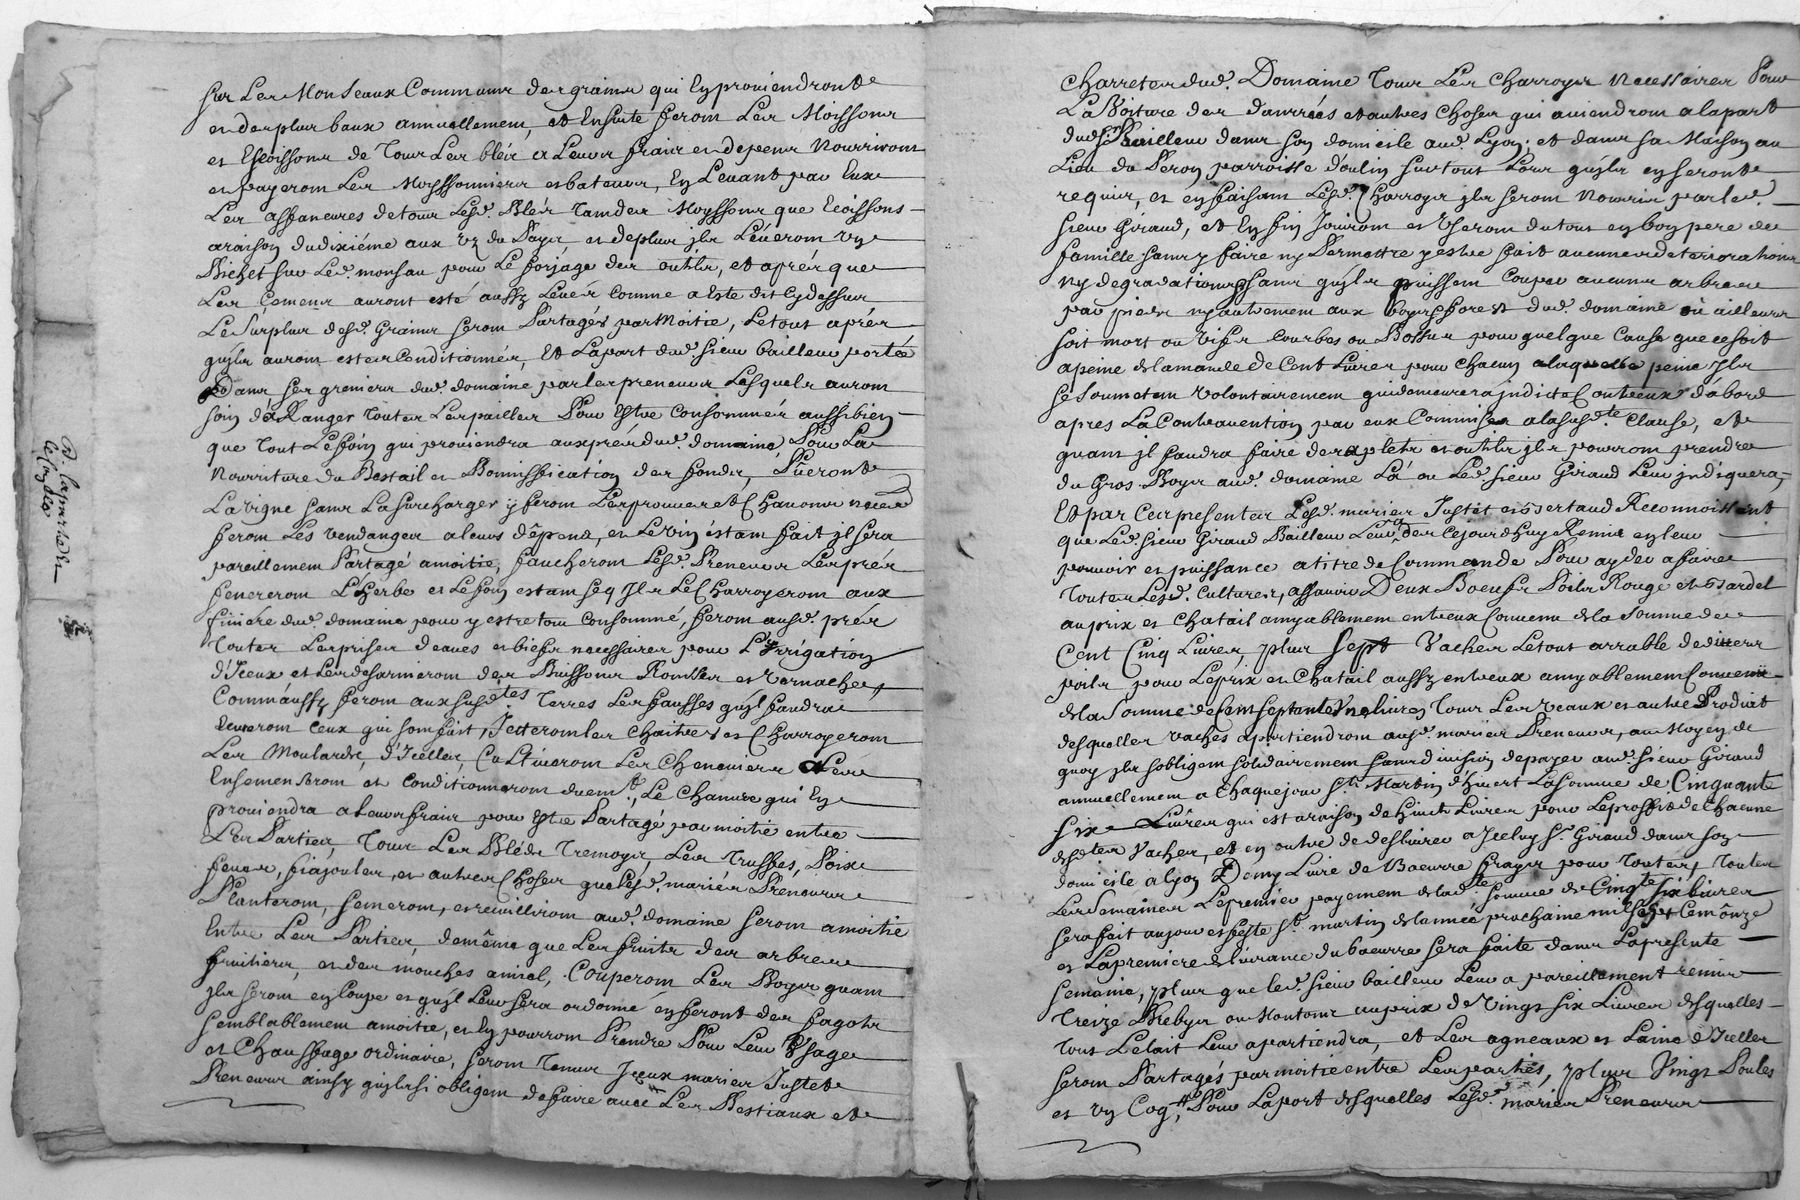 sur Les Monseaux Communs des grains qui En proviendront
es deux plus baux annuellement, et Ensuite feront Les Moissons
et Escoissons de Tous Les bléz a Leurs fraix et depens Nourriront
et payeront Les Moyssonniers et bateurs, En Levant par Eux
Les affaneures de tous Lesd. Bléz Tant des Moyssons que Ecoissons
araison dudixiéme aux Vz du Pays, et deplus jls Léveront Un
Bichet sur Led. monsau pour Le forjage des outils, et aprés que
Les Cemens auront esté aussy Levés Comme a Este dit Cydessus
Le Surplus desd. Grains seront Partagés par Moitie, Letout aprés
qu'jls auront ester Conditionnés, Et Lapart dud. sieur bailleur portée
Dans ses greniers dud. domaine par les preneurs Lesquels auront
soin dé Ranger toutes Les pailles Pour Estre Consommés aussibien
que Tout Le foin qui proviendra aux prés dud. domaine, Pour La
Nourriture du Bestail et Bonnification des fonds,
La vigne sans La surcharger y feront Les provins et Chanons
feront Les Vendanges a leurs dêpens, et Le Vin éstant fait jl sera
pareillement Partagé amoitié, faucheront Lesd. Preneurs Les prés
feneront L'herbe et Le foin estant seq Jls Le Charroyeront aux
finiére dud. domaine pour y estre tout Consommé, feront ausd. prés
Toutes Les prises d'eaues et biefs necessaires pour L'Irrigation
d'Iceux et Les desarmeront des Buissons Ronsses et Varnaches,
Comm'aussy feront aux susd.tes Terres Les fausses qu'jl faudra
Cureront Ceux qui sont fait, Jetteront les Chaitres et Charroyeront
Les Moulards, d'Icelles, Cultiveront Les Cheneviers Les
Ensemenseront et Conditionneront duemt, Le Chanvre qui En
proviendra a Leurs fraix pour Estre Partagé par moitié entre
Les Parties, Tous Les Bléds Tremoys, Les Truffes, Poix
feves, fiajoules, et autres Choses que Lesd. mariés Preneurs
Planteront, semeront, et reuilliront aud. domaine seront amoitié
Entre Les Parties, de même que Les fruits des arbres
fruitiers, et des mouches amiel, Couperont Les Boys quant
jls seront en Coupe et qu'jl Leur sera ordonné en feront des fagots
semblablement amoitie, et En pourront Prendre Pour Leur Usage
et Chauffage ordinaire, seront Tenus Jceux mariés Justet
Preneurs ainsy qu'jls si obligent de faire avec Les Bestiaux et
charrettes dud. Domaine Tous Les Charroys Necessaires Pour
La Voiture des danrées et autres Choses qui aviendront a lapart
dud. Sr. Bailleur dans son domicile aud. Lyon, et dans sa Maison au
Lieu du Peron parroisse d'oulin surtout Lors qu'jls en seront
requis, et en faisant Lesd. Charroys jls seront Nourris par led.
sieur Giraud, et En fin Jouiront et Useront du tout en bon pere de
famille sans y faire ny Permettre y estre fait aucunes déteriorations
ny degradations sans qu'jls puissent Couper aucuns arbres
par pieds ny autrement aux boys et forest dud. domaine où ailleurs
soit mort ou Vifs Courbes ou Bossus pour quelque Cause que ce soit
apeine de lamande de Cent Livres pour chacun a laquelle peine Jls
se soumettent Volontairement qui demeurera jndicte Contreux d'abord
apres La Contravention par eux Commise a la susd.te Clause, et
quant jl faudra faire des aplets et outils jls pourront prendre
du Gros Boys aud. domaine La où Led. sieur Giraud Leur jndiquera,
Et par Ces presentes Lesd. mariés Justet et Bertaud Reconnoissent
que Led. sieur Giraud Bailleur Leur a dés Cejourdhuy Remis en leur
pouvoir et puissance a titre de Commande Pour ayder a faire
Toutes Lesd. Cultures, assavoir Deux Boeufs Poils Rouge et Bardel
au prix et Chatail amyablement entreux Convenu de la Somme de
Cent Cinq Livres, plus Sept Vaches Letout arrable de divers
poils pour Leprix et Chatail aussy entreux amyablement Convenu
de la Somme de Cent septante Une livres Tous Les Veaux et autre Produit
desquelles Vaches apartiendront ausd. mariés Preneurs, au Moyen de
quoy jls s'obligent solidairement sans division de payer aud. sieur Giraud
annuellement a Chaque jour St. Martin d'hiver La Somme de Cinquante
six Livres qui est araison de huict Livres pour Le proffit de Chacune
desd.tes Vaches, et en outre de deslivrer a Jceluy Sr. Giraud dans son
domicile a lyon Demy Livre de Baeurre frays pour Toutes, Toutes
Les Semaines Le premier payement de lad.te somme de Cinq.te six livres
sera fait au jour et feste St. martin de lannée prochaine mil sept Cent ônze
et La premiere délivrance du baeurre sera faite dans La presente
semaine, plus que led. sieur bailleur Leur a pareillement remis
Treize Brebys ou Moutons au prix de Vingt six Livres desquelles
Tous Le lait Leur apartiendra, et Les agneaux et Laine d'Icelles
seront Partagés par moitié entre Les parties, plus Vingt Poules
et Un Coq, Pour La port desquelles Lesd. mariés Preneurs